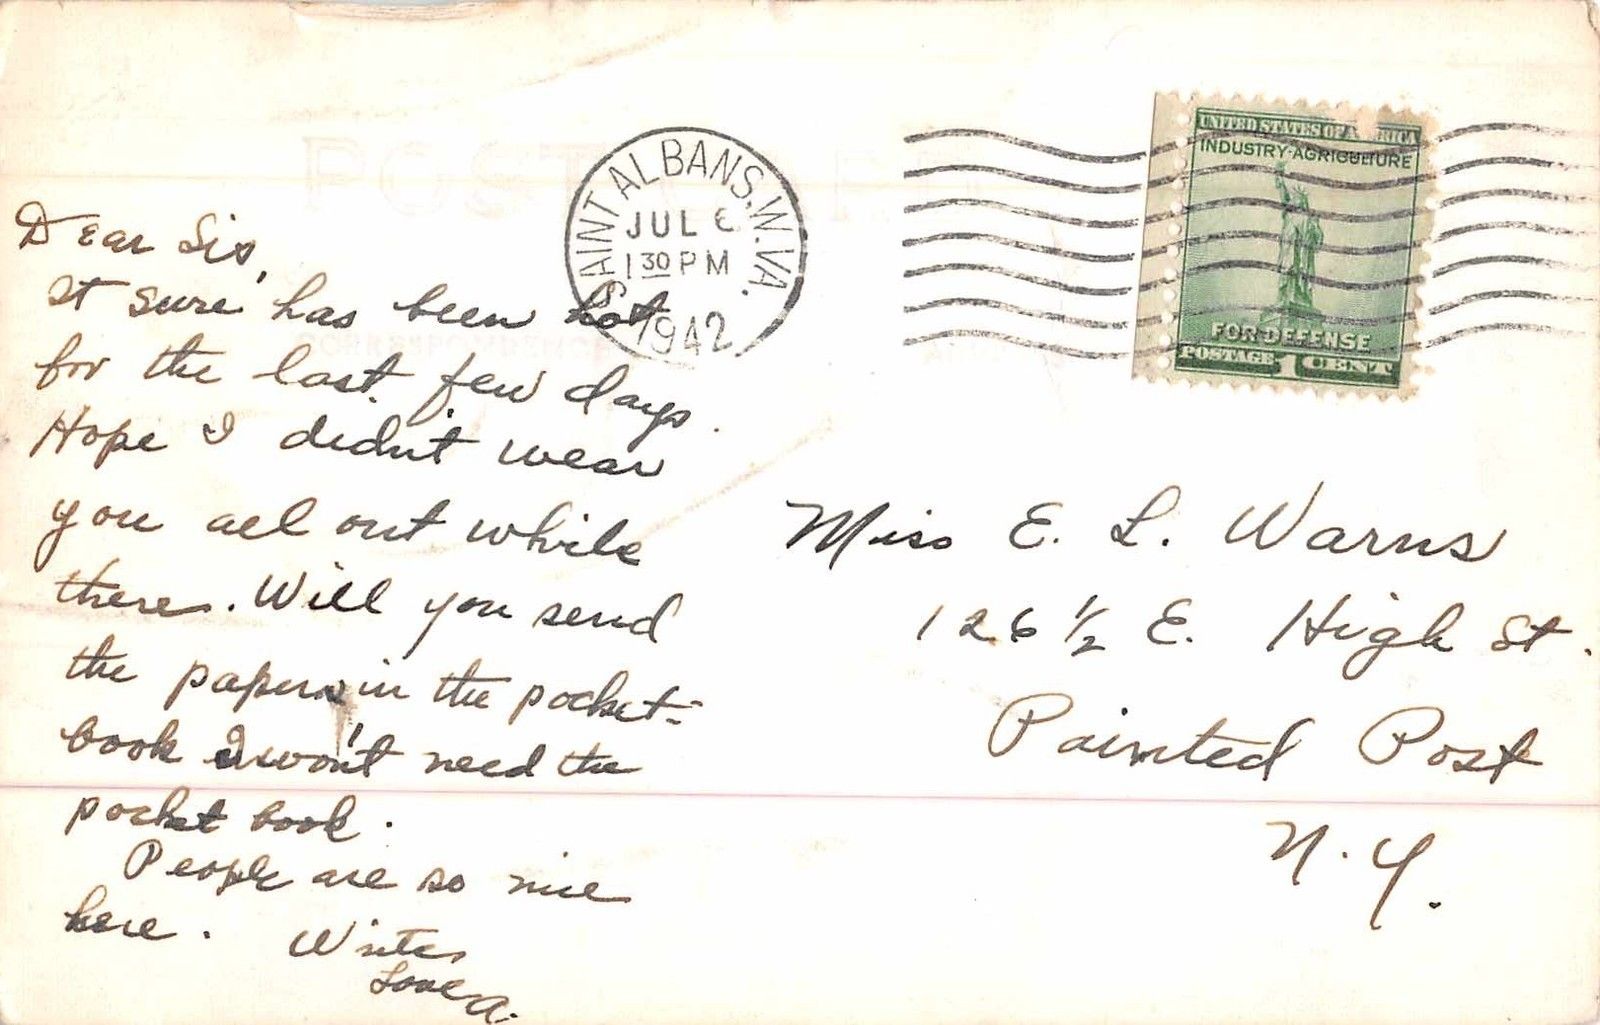 POST CARD
SAINT ALBANS, W. VA.
JUL 6
1 30 PM
1942
UNITED STATES OF AMERICA
INDUSTRY-AGRICULTURE
FOR DEFENSE
POSTAGE 1 CENT
CORRESPONDENCE
Dear Sis,
It sure has been hot
for the last few days.
Hope I didn't wear
you all out while
there. Will you send
the papers in the pocket-
book I won't need the
pocket book.
People are so nice
here. Write,
Love A.
Miss E. L. Warns
126 1/2 E. High St.
Painted Post
N.Y.